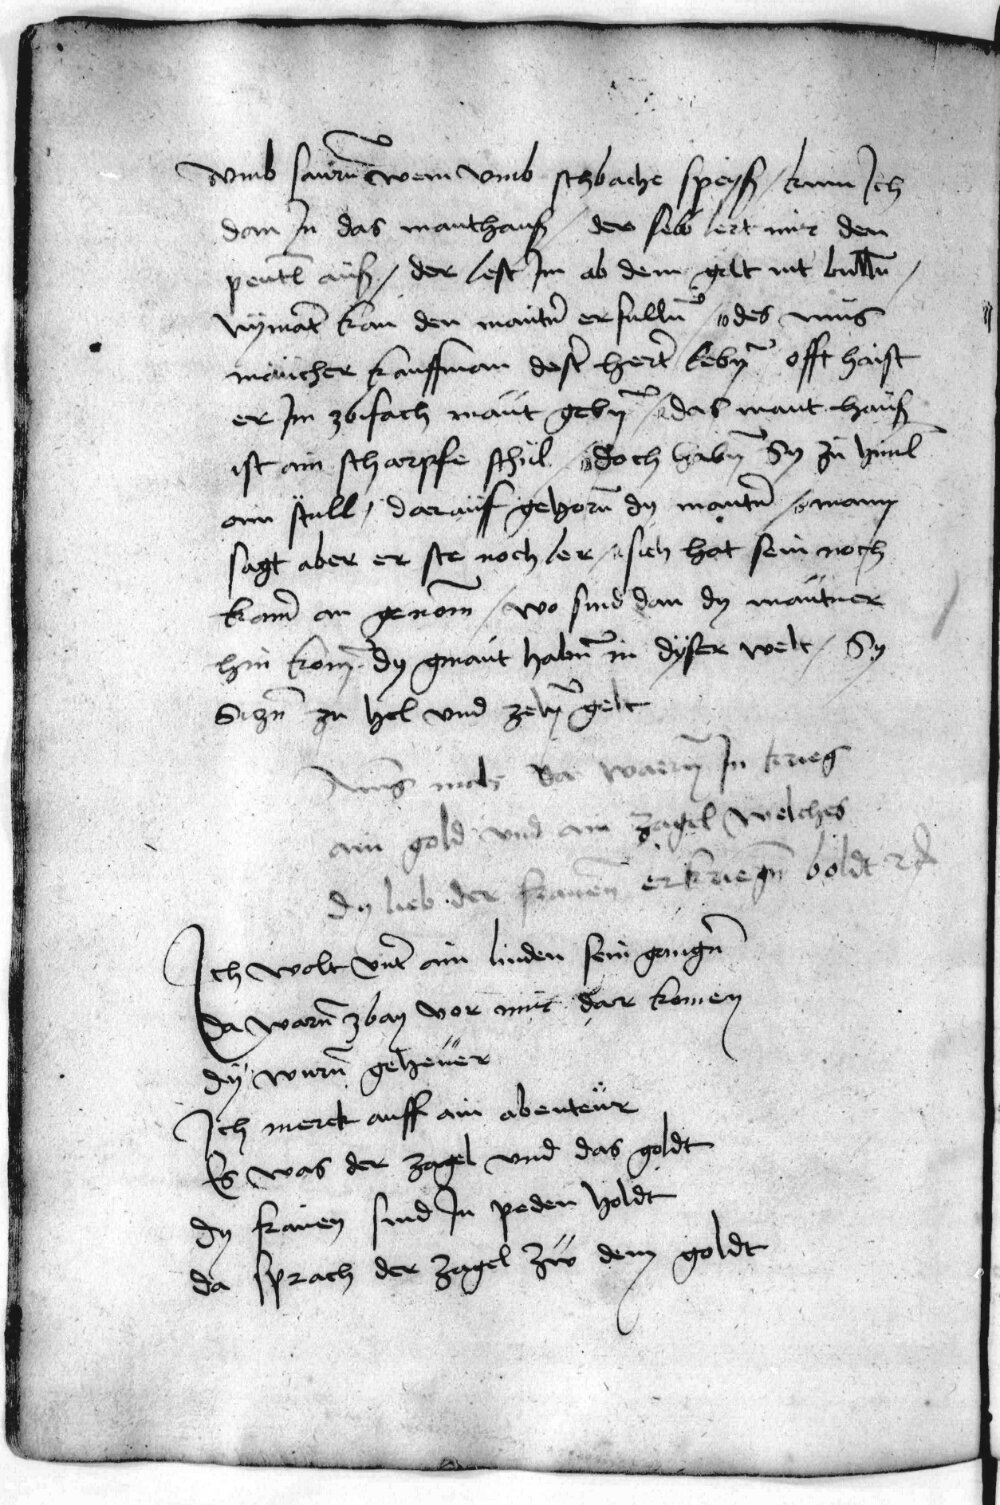 vmb saurn wein vmb schbache speyß / kum Ich
dan In das mauthauß / der selb lert mir den
peutl auß / der lest Im ab dem gelt nit
nymãt kan den mautn̄ erfulln̄ / des mus
mancher kauffman dest hert̄ lebñ offt haist
er Im zbifach maut gebñ / das maut hauß
ist ain scharpfe schul / doch habñ Sy zu himl
ain stull / darauff gehorn̄ dy mautn̄ / mann
sagt aber er ste noch ler / sich hat sein noch
kain̄ an genom̄ / wo sind dan dy mautner
hin kom̄ dy gmaut habn̄ in dyser welt / Sy
Siczn̄ zu hel vnd zelñ gelt
mals da warñ In krieg
ain gold vnd ain zagel welches
dy lieb der frauen̄ erkriegn̄ boldt
Ich wolt vnt̄ ain linden sein gangn̄
da warn̄ zbay vor mir dar komen
dy wurn̄ geheuer
Ich merck auff ain abenteur
Es was der zagel vnd das goldt
dy frauen sind In peden holdt
da sprach der zagel zw dem goldt